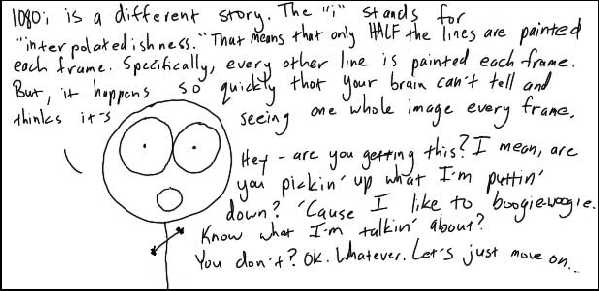 1080i is a different story. The "i" stands for
"interpolatedishness." That means that only HALF the lines are painted
each frame. Specifically, every other line is painted each frame.
But, it happens so quickly that your brain can't tell and
thinks it's seeing one whole image every frame.
Hey - are you getting this? I mean, are
you pickin' up what I'm puttin'
down? 'Cause I like to boogie-woogie.
Know what I'm talkin' about?
You don't? OK. Whatever. Let's just move on...